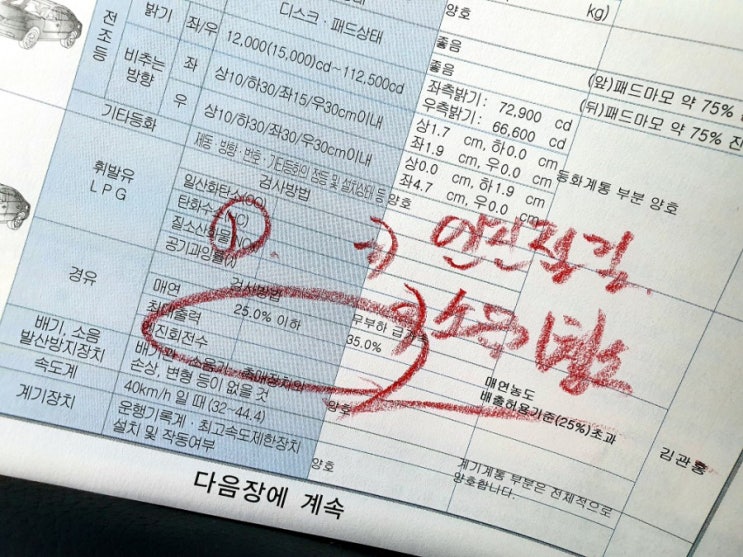 디스크·패드상태
양호
kg)
전조등
밝기
좌/우
12,000(15,000)cd~112,500cd
좋음
좋음
(앞)패드마모 약 75%
비추는
방향
좌
상10/하30/좌15/우30cm이내
좌측밝기: 72,900 cd
우측밝기: 66,600 cd
(뒤)패드마모 약 75% 진
우
상10/하30/좌30/우30cm이내
상1.7 cm, 하0.0 cm
좌1.9 cm, 우0.0 cm
상0.0 cm, 하1.9 cm
좌4.7 cm, 우0.0 cm
기타등화
제동·방향·번호·기타등화의 점등 및 설치상태 등
양호
등화계통 부분 양호
휘발유
LPG
검사방법
일산화탄소(CO)
탄화수소(HC)
질소산화물(NOx)
공기과잉률(λ)
엔진점검
경유
매연
검사방법
25.0% 이하
무부하 급가속
35.0%
최대출력
엔진회전수
매연농도
배출허용기준(25%)초과
배기, 소음
발산방지장치
배기관, 소음기, 촉매장치의
손상, 변형 등이 없을 것
양호
속도계
40km/h 일 때 (32~44.4)
계기장치
운행기록계·최고속도제한장치
설치 및 작동여부
양호
계기계통 부분은 전체적으로
양호합니다.
김관홍
다음장에 계속